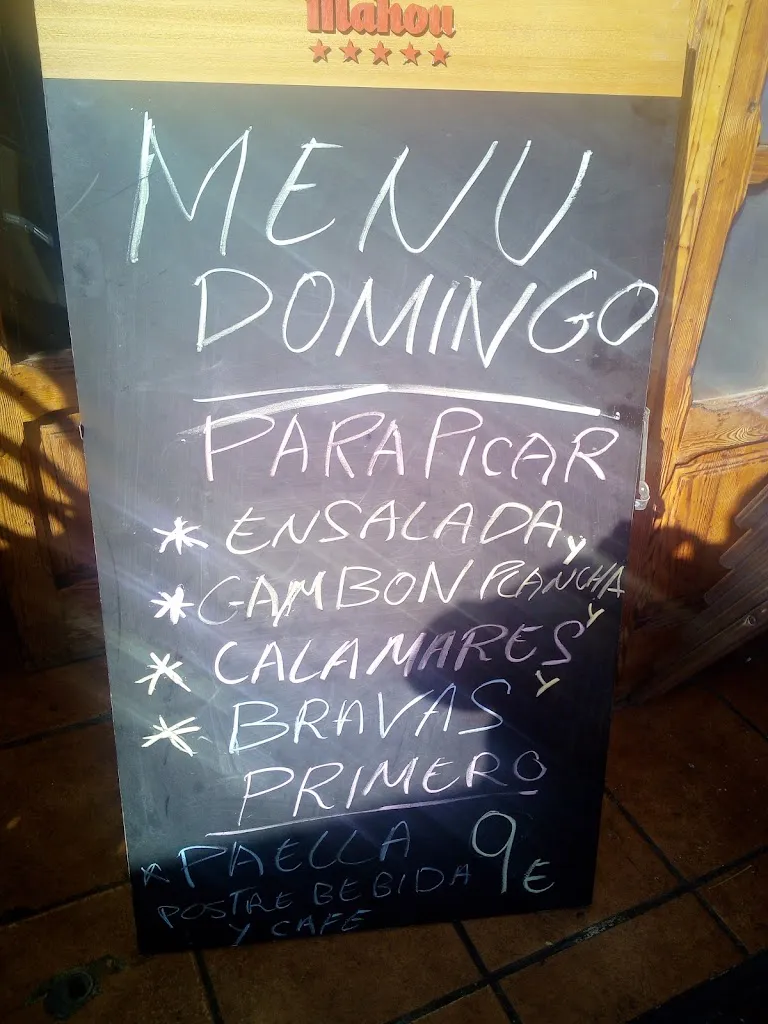 Mahou
MENU
DOMINGO
PARA PICAR
* ENSALADA y
* GAMBON PLANCHA y
* CALAMARES y
* BRAVAS
PRIMERO
* PAELLA 9 €
POSTRE BEBIDA
Y CAFE